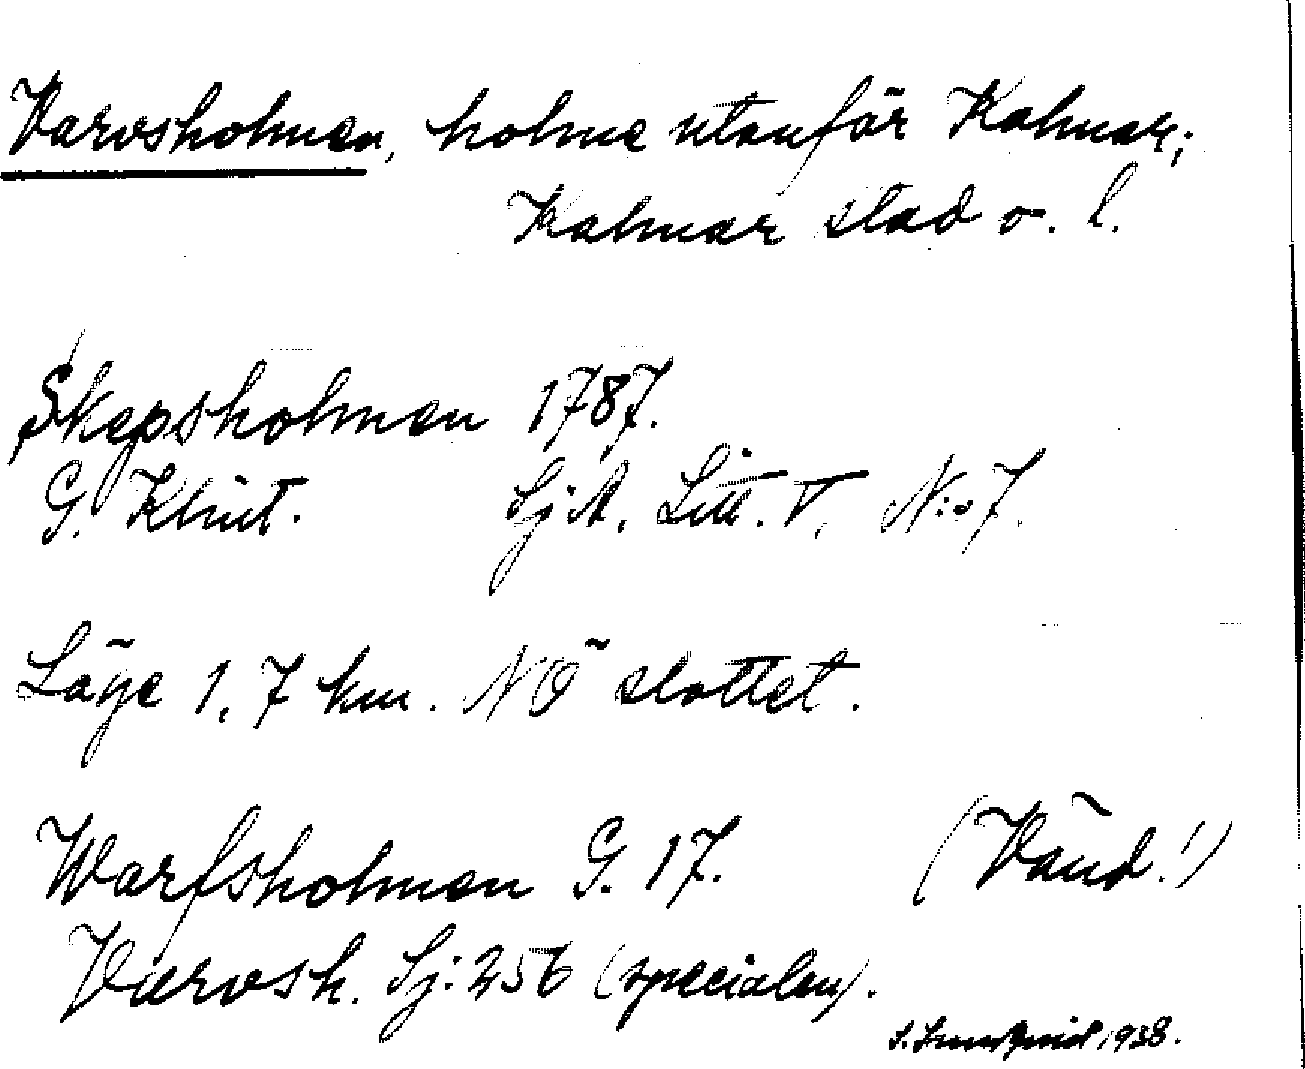 Varvsholmen, holme utanför Kalmar;
Kalmar stad o. l.
Skepsholmen 1787.
G. Klint. Sj:A. Litt. V. N:o 7.
Läge 1,7 km. NÖ slottet.
Warfsholmen G. 17. (Vänd!)
Varvsh. Sj: 256 (specialen).
1938.